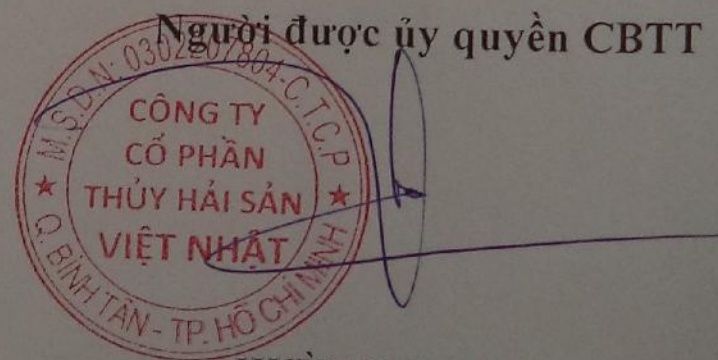 Người được ủy quyền CBTT
M.S.D.N: 0302207804-C.T.C.P
CÔNG TY
CỔ PHẦN
THỦY HẢI SẢN
VIỆT NHẬT
Q. BÌNH TÂN - TP. HỒ CHÍ MINH